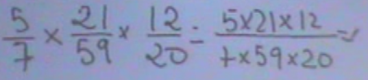 5/7 × 21/59 × 12/20 = 5×21×12/7×59×20 =